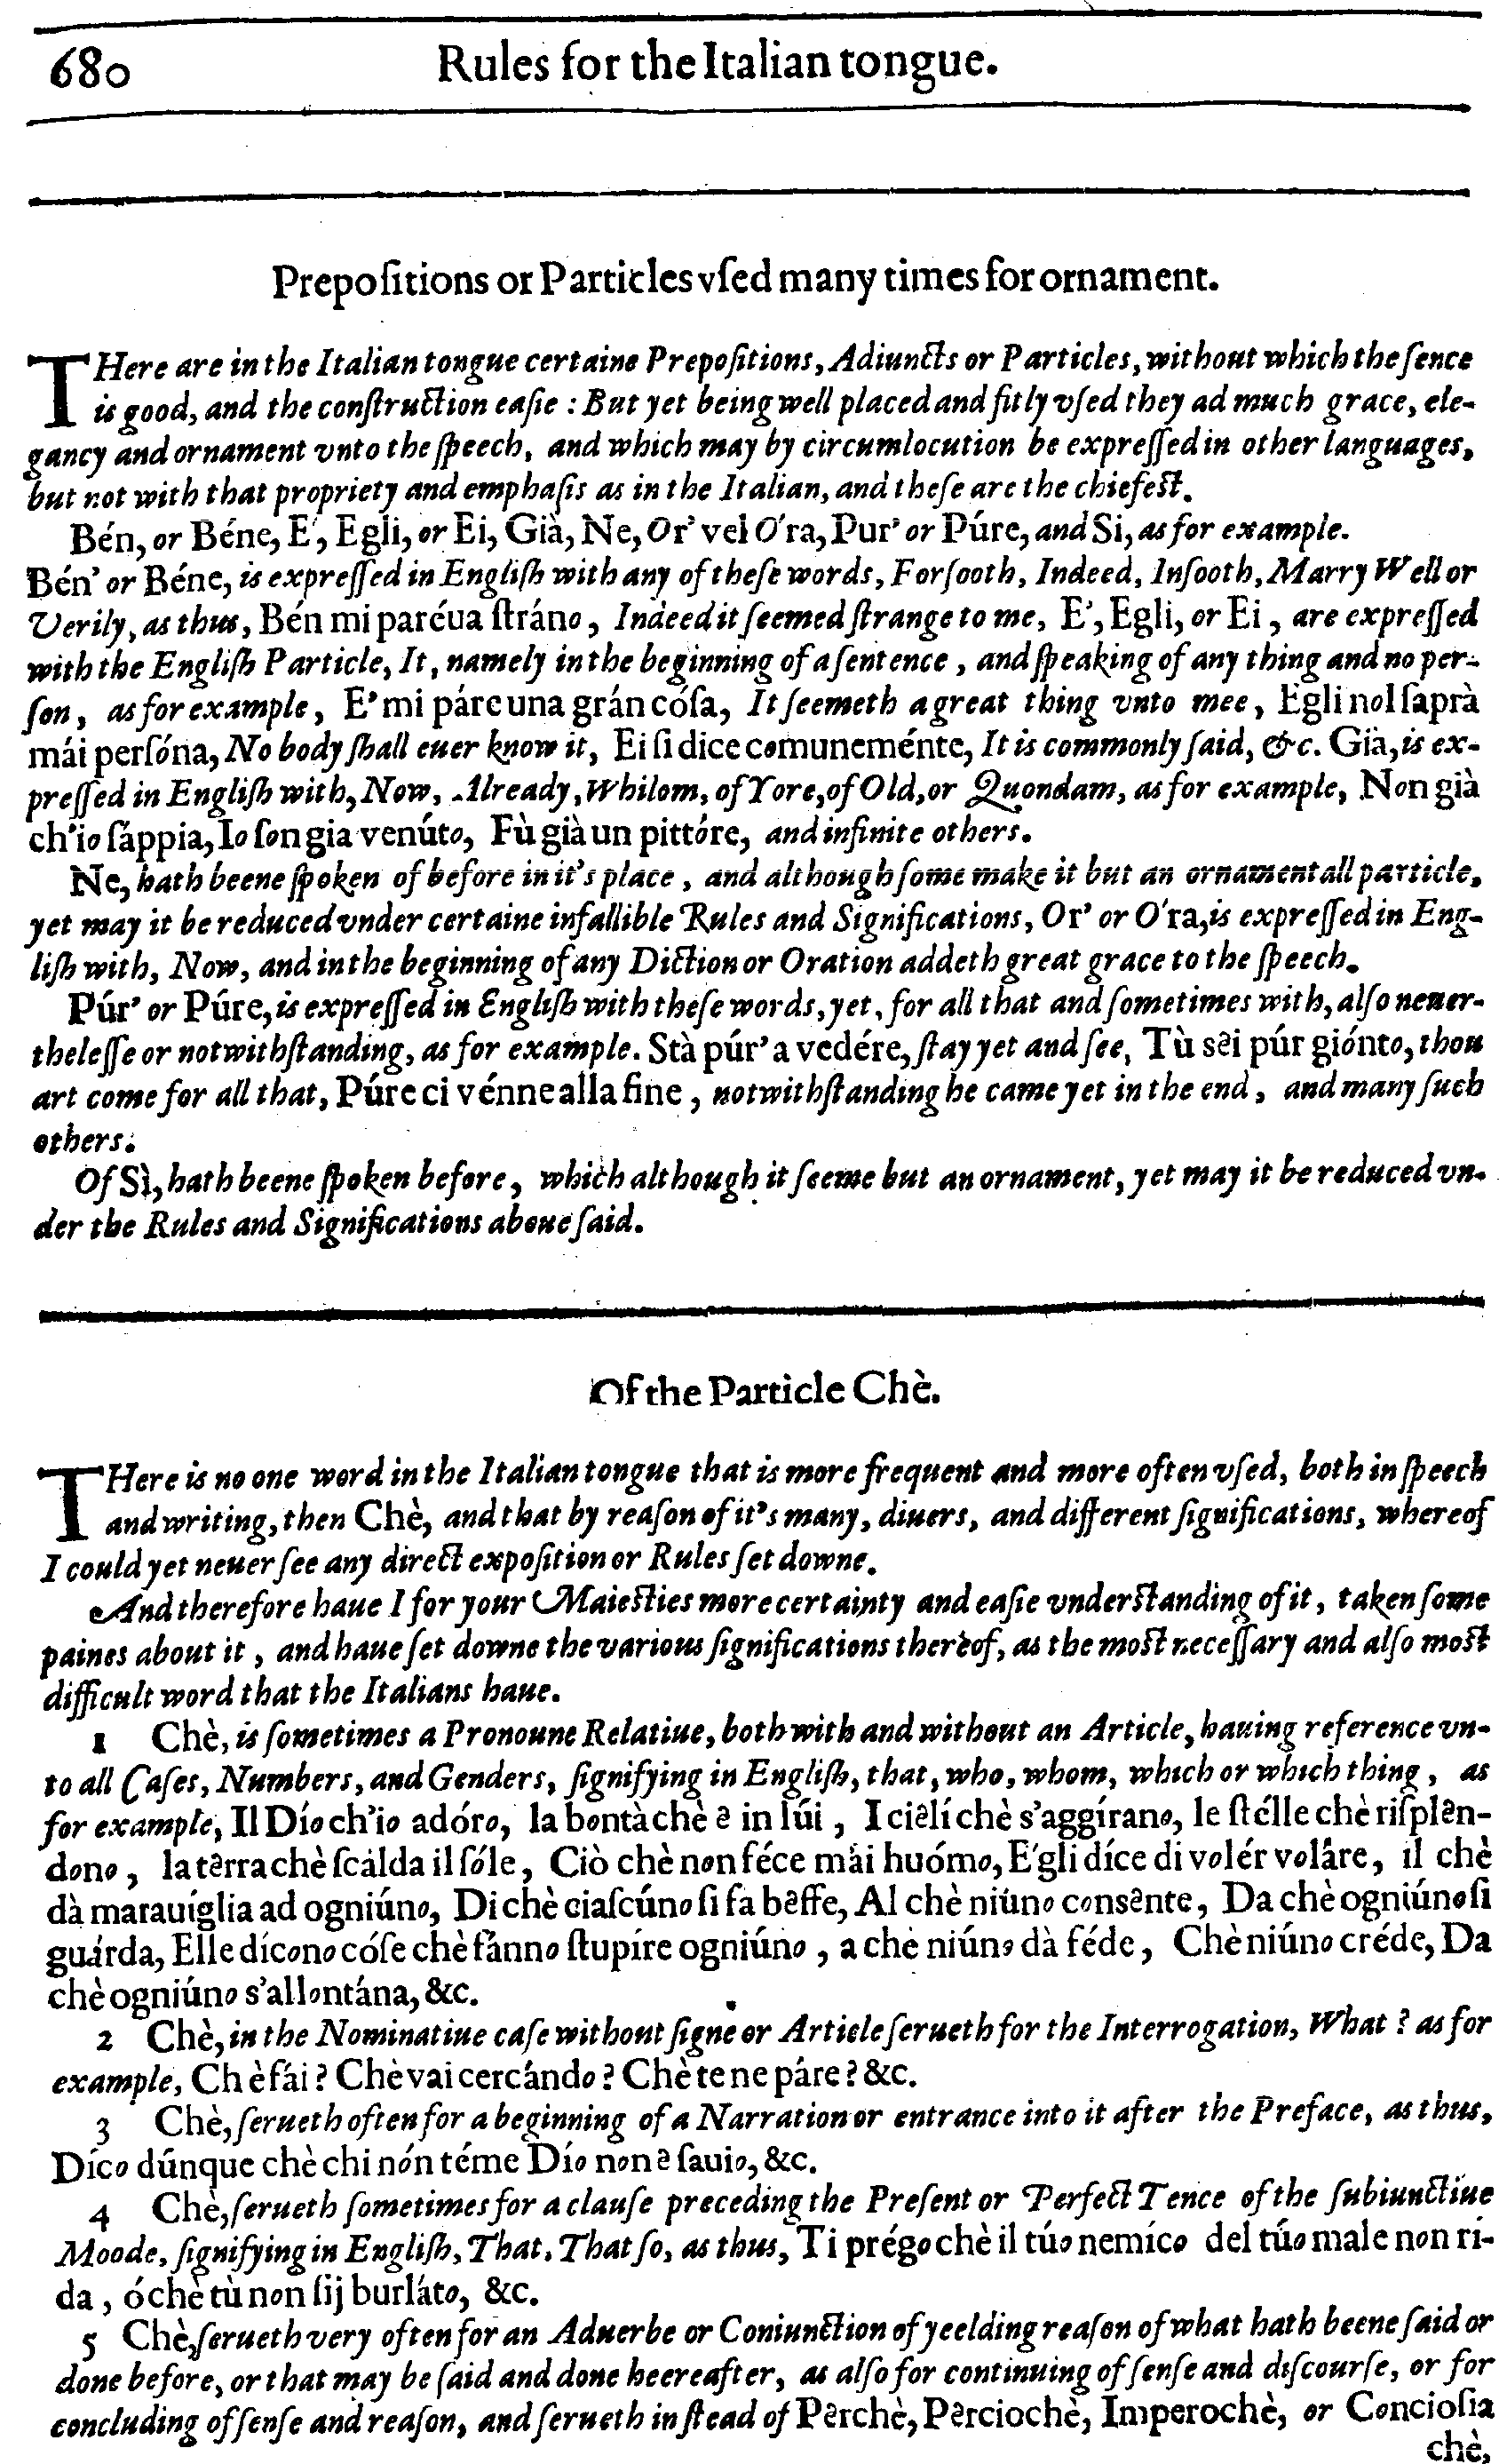 680
Rules for the Italian tongue.
Prepoſitions or Particles vſed many times for ornament.
THere are in the Italian tongue certaine Prepoſitions, Adiuncts or Particles, without which the ſence
is good, and the conſtruction eaſie : But yet being well placed and fitly vſed they ad much grace, ele-
gancy and ornament vnto the ſpeech, and which may by circumlocution be expreſſed in other languages,
but not with that propriety and emphaſis as in the Italian, and theſe are the chiefeſt.
Bén, or Béne, E', Egli, or Ei, Già, Ne, Or' vel O'ra, Pur' or Púre, and Si, as for example.
Bén' or Béne, is expreſſed in Engliſh with any of theſe words, Forſooth, Indeed, Inſooth, Marry Well or
Verily, as thus, Bén mi paréua ſtráno, Indeed it ſeemed ſtrange to me, E', Egli, or Ei, are expreſſed
with the Engliſh Particle, It, namely in the beginning of a ſentence, and ſpeaking of any thing and no per-
ſon, as for example, E' mi páre una grán cóſa, It ſeemeth a great thing vnto mee, Egli nol ſaprà
mái perſóna, No body ſhall euer know it, Ei ſi dice comuneménte, It is commonly ſaid, &c. Già, is ex-
preſſed in Engliſh with, Now, Already, Whilom, of Yore, of Old, or Quondam, as for example, Non già
ch'io ſáppia, Io ſon gia venúto, Fù già un pittóre, and infinite others.
Ne, hath beene ſpoken of before in it's place, and although ſome make it but an ornamentall particle,
yet may it be reduced vnder certaine infallible Rules and Significations, Or' or O'ra, is expreſſed in Eng-
liſh with, Now, and in the beginning of any Diction or Oration addeth great grace to the ſpeech.
Púr' or Púre, is expreſſed in Engliſh with theſe words, yet, for all that and ſometimes with, alſo neuer-
theleſſe or notwithſtanding, as for example. Stà púr' a vedére, ſtay yet and ſee, Tù sêi púr giónto, thou
art come for all that, Púre ci vénne alla fine, notwithſtanding he came yet in the end, and many ſuch
others.
Of Sì, hath beene ſpoken before, which although it ſeeme but an ornament, yet may it be reduced vn-
der the Rules and Significations aboue ſaid.
Of the Particle Chè.
THere is no one word in the Italian tongue that is more frequent and more often vſed, both in ſpeech
and writing, then Chè, and that by reaſon of it's many, diuers, and different ſignifications, whereof
I could yet neuer ſee any direct expoſition or Rules ſet downe.
And therefore haue I for your Maieſties more certainty and eaſie vnderſtanding of it, taken ſome
paines about it, and haue ſet downe the various ſignifications thereof, as the moſt neceſſary and alſo moſt
difficult word that the Italians haue.
1 Chè, is ſometimes a Pronoune Relatiue, both with and without an Article, hauing reference vn-
to all Caſes, Numbers, and Genders, ſignifying in Engliſh, that, who, whom, which or which thing, as
for example, Il Dío ch'io adóro, la bontà chè ê in lúi, I ciêli chè s'aggírano, le ſtélle chè riſplên-
dono, la têrra chè ſcálda il ſóle, Ciò chè non féce mái huómo, E'gli díce di volér voláre, il chè
dà marauíglia ad ogniúno, Di chè ciaſcúno ſi fa bêffe, Al chè niúno consênte, Da chè ogniúno ſi
guárda, Elle dícono cóſe chè fánno ſtupíre ogniúno, a chè niúno dà féde, Chè niúno créde, Da
chè ogniúno s'allontána, &c.
2 Chè, in the Nominatiue caſe without ſigne or Article ſerueth for the Interrogation, What ? as for
example, Chè fái ? Chè vai cercándo ? Chè te ne páre ? &c.
3 Chè, ſerueth often for a beginning of a Narration or entrance into it after the Preface, as thus,
Díco dúnque chè chi nón téme Dío non ê ſauio, &c.
4 Chè, ſerueth ſometimes for a clauſe preceding the Preſent or Perfect Tence of the ſubiunctiue
Moode, ſignifying in Engliſh, That, That ſo, as thus, Ti prégo chè il túo nemíco del túo male non ri-
da, ó chè tù non ſij burláto, &c.
5 Chè, ſerueth very often for an Aduerbe or Coniunction of yeelding reaſon of what hath beene ſaid or
done before, or that may be ſaid and done heereafter, as alſo for continuing of ſenſe and diſcourſe, or for
concluding of ſenſe and reaſon, and ſerueth in ſtead of Pêrchè, Pêrciochè, Imperochè, or Concioſia
chè,